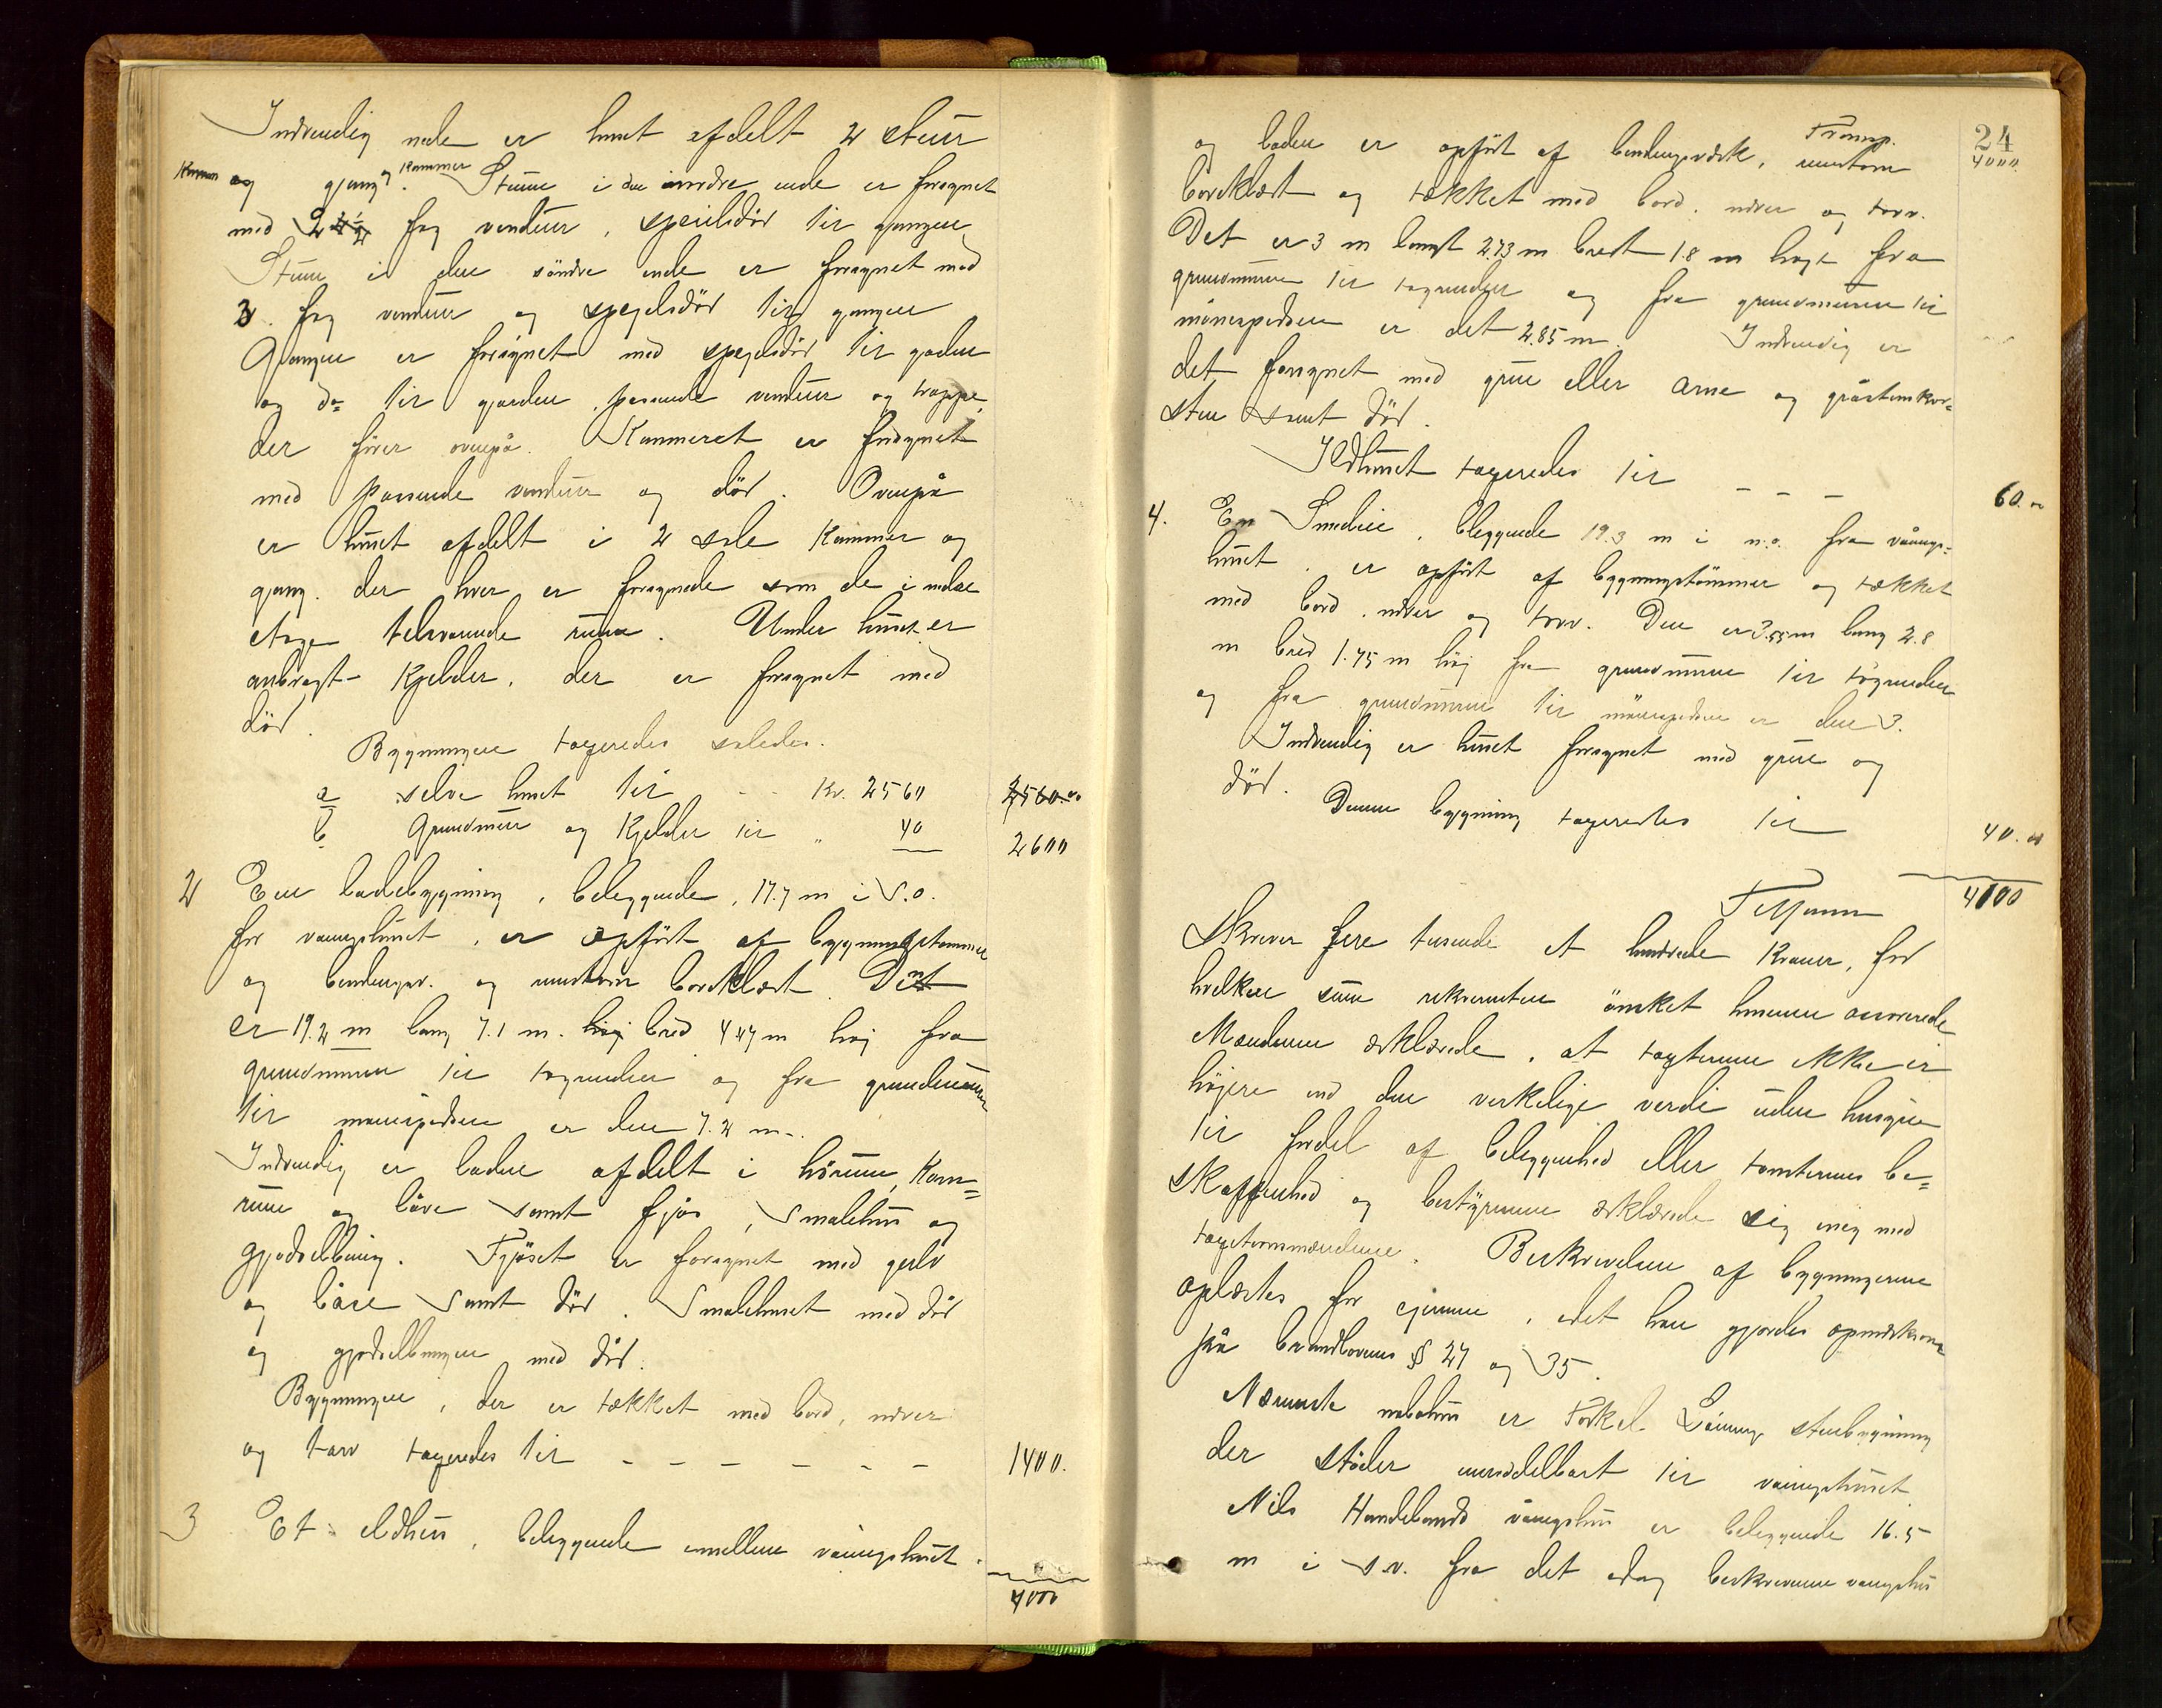 Indvendig nede er huset afdelt 2 stuer
og gjang og Kammer. Stuen i den nordre ende er forsynet
med 2 fag vinduer, speilsdör til gangen
Stuen i den söndre ende er forsynet med
3 fag vinduer og spegelsdör til gangen
Gangen er forsynet med spegelsdör til gaden
og do til gaarden, passende vinduer og trappe,
der förer ovenpå. Kammeret er forsynet
med passende vinduer og dör. Ovenpå
er huset afdelt i 2 sale Kammer og
gang, der hver er forsynede som de i nedre
etage tilsvarende rum. Under huset er
anbragt Kjelder, der er forsynet med
dör.
Bygningen taxeredes således.
a selve huset til - - Kr. 2560 2560.00
b Grundmur og Kjelder til " 40 2600
2 En ladebygning, beleggende, 17.7 m i S.o.
for vaaningshuset, er opfört af bygningstömmer
og bendingsv. og udenom bordklædt. Den
er 19.2 m lang 7.1 m. bred 4.47 m höj fra
grundmuren til tagrenden og fra grundmuren
til mönespidsen er den 7.2 m.
Indvendig er laden afdelt i hörum, Korn=
rum og låve samt fjös, Smalehus og
gjødselbinig. Fjöset er forsynet med gulv
og båse samt dör. Smalehuset med dör
og gjødselbingen med dör.
Bygningen, der er tækket med bord, næver
og torv taxeredes til - - - - - - 1400.
3 Et ildhus, beleggende imellem vaaningshuset
4000
24
Transp. 4000.
og laden er opfört af bendingsværk, udenom
bordklædt og tækket med bord, næver og torv.
Det er 3 m langt 2.73 m bredt 1.8 m högt fra
grundmuren til tagrenden og fra grundmuren til
mönespidsen er det 2.85 m. Indvendig er
det forsynet med grue eller arne og gråstenskor=
sten samt dör.
Ildhuset taxeredes til - - - 60.00
4. En Smedie, beleggende 19.3 m i n.o. fra vånings=
huset, er opfört af bygningstömmer og tækket
med bord, næver og torv. Den er 3.55 m lang 2.8
m bred 1.75 m höj fra grundmuren til tagrenden
og fra grundmuren til mönespidsen er den 3.
Indvendig er huset forsynet med grue og
dör.
Denne bygning taxeredes til 40.00
Tilsammen 4100
Skriver fire tusende et hundrede Kroner, for
hvilken sum rekvirenten önsket husene assurerede
Mændene erklærede, at taxterne ikke er
höjere end den verkelige verdi uden hensyn
til fordel af beleggenhed eller tomternes be=
skaffenhed og bestyreren erklærede sig enig med
taxtsmændene. Beskrivelsen af bygningerne
oplæstes for ejeren, idet han gjordes opmærksom
på brandlovens § 27 og 35.
Nærmeste nabohus er Torkel stuebygning
der stöder umiddelbart til våningshuset.
Nils Handelands våningshus er beleggende 16.5
m i s.v. fra det idag beskrevne vaaningshus